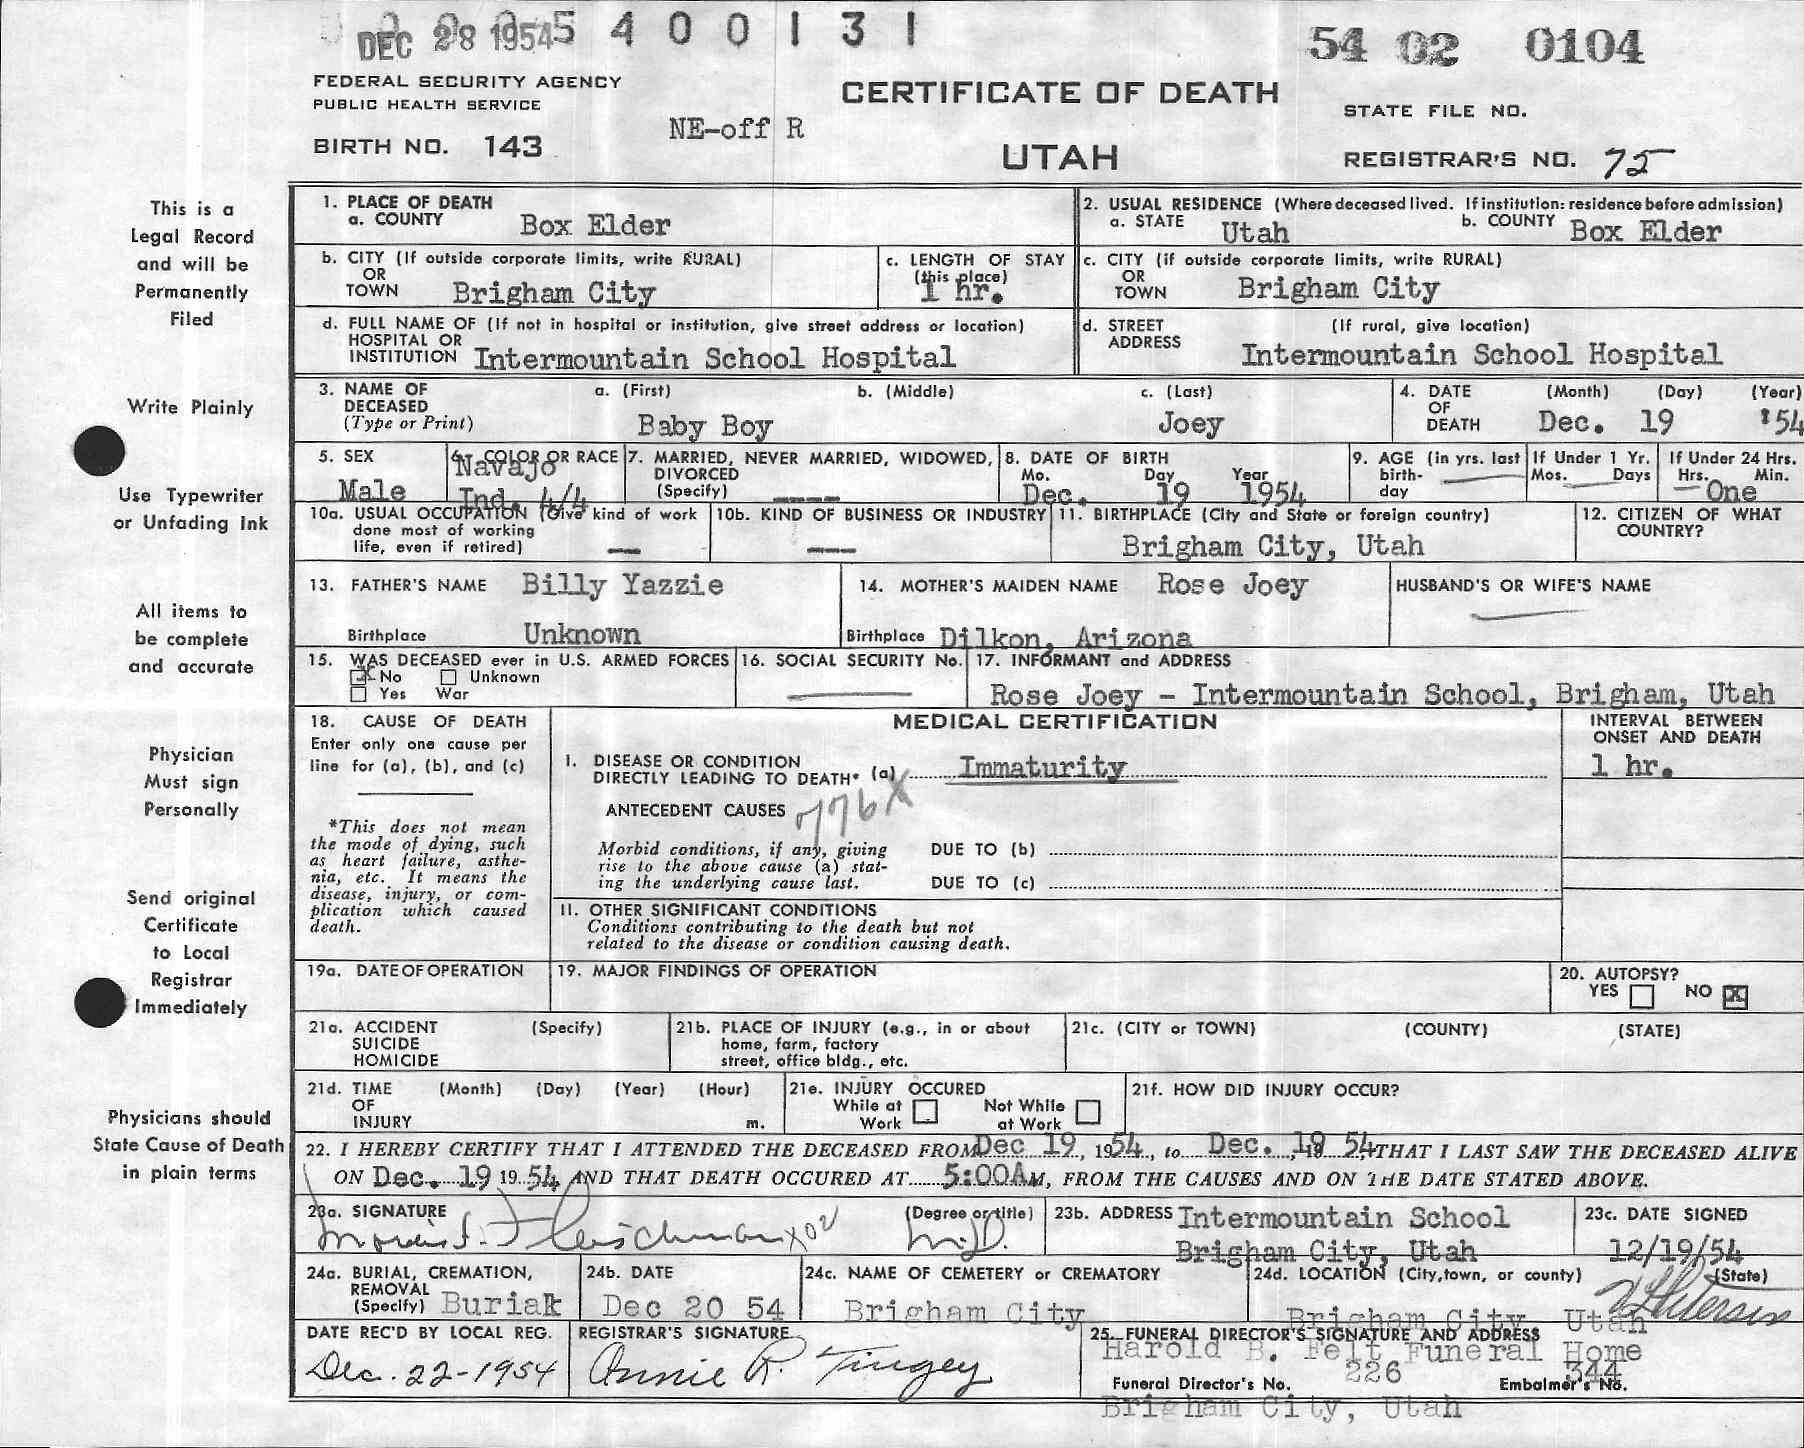 DEC 28 1954 5 4 0 0 1 3 1
54 02 0104
FEDERAL SECURITY AGENCY
PUBLIC HEALTH SERVICE
BIRTH NO. 143
NE-off R
CERTIFICATE OF DEATH
UTAH
STATE FILE NO.
REGISTRAR'S NO. 75
This is a
Legal Record
and will be
Permanently
Filed
Write Plainly
Use Typewriter
or Unfading Ink
All items to
be complete
and accurate
Physician
Must sign
Personally
Send original
Certificate
to Local
Registrar
Immediately
Physicians should
State Cause of Death
in plain terms
1. PLACE OF DEATH
a. COUNTY Box Elder
2. USUAL RESIDENCE (Where deceased lived. If institution: residence before admission)
a. STATE Utah b. COUNTY Box Elder
b. CITY (If outside corporate limits, write RURAL)
OR
TOWN Brigham City
c. LENGTH OF STAY
(this place)
1 hr.
c. CITY (if outside corporate limits, write RURAL)
OR
TOWN Brigham City
d. FULL NAME OF (If not in hospital or institution, give street address or location)
HOSPITAL OR
INSTITUTION Intermountain School Hospital
d. STREET (If rural, give location)
ADDRESS Intermountain School Hospital
3. NAME OF a. (First) b. (Middle) c. (Last)
DECEASED
(Type or Print) Baby Boy Joey
4. DATE (Month) (Day) (Year)
OF
DEATH Dec. 19 '54
5. SEX
Male
6. COLOR OR RACE
Navajo
Ind. 4/4
7. MARRIED, NEVER MARRIED, WIDOWED,
DIVORCED
(Specify)
8. DATE OF BIRTH
Mo. Day Year
Dec. 19 1954
9. AGE (in yrs. last
birth-
day
If Under 1 Yr.
Mos. Days
If Under 24 Hrs.
Hrs. Min.
One
10a. USUAL OCCUPATION (Give kind of work
done most of working
life, even if retired)
10b. KIND OF BUSINESS OR INDUSTRY
11. BIRTHPLACE (City and State or foreign country)
Brigham City, Utah
12. CITIZEN OF WHAT
COUNTRY?
13. FATHER'S NAME Billy Yazzie
Birthplace Unknown
14. MOTHER'S MAIDEN NAME Rose Joey
Birthplace Dilkon, Arizona
HUSBAND'S OR WIFE'S NAME
15. WAS DECEASED ever in U.S. ARMED FORCES
X No Unknown
Yes War
16. SOCIAL SECURITY No.
17. INFORMANT and ADDRESS
Rose Joey - Intermountain School, Brigham, Utah
18. CAUSE OF DEATH
Enter only one cause per
line for (a), (b), and (c)
*This does not mean
the mode of dying, such
as heart failure, asthe-
nia, etc. It means the
disease, injury, or com-
plication which caused
death.
MEDICAL CERTIFICATION
I. DISEASE OR CONDITION
DIRECTLY LEADING TO DEATH* (a) Immaturity
ANTECEDENT CAUSES 776X
Morbid conditions, if any, giving
rise to the above cause (a) stat-
ing the underlying cause last.
DUE TO (b)
DUE TO (c)
II. OTHER SIGNIFICANT CONDITIONS
Conditions contributing to the death but not
related to the disease or condition causing death.
INTERVAL BETWEEN
ONSET AND DEATH
1 hr.
19a. DATE OF OPERATION
19. MAJOR FINDINGS OF OPERATION
20. AUTOPSY?
YES NO X
21a. ACCIDENT (Specify)
SUICIDE
HOMICIDE
21b. PLACE OF INJURY (e.g., in or about
home, farm, factory
street, office bldg., etc.
21c. (CITY or TOWN) (COUNTY) (STATE)
21d. TIME (Month) (Day) (Year) (Hour)
OF
INJURY m.
21e. INJURY OCCURED
While at Not While
Work at Work
21f. HOW DID INJURY OCCUR?
22. I HEREBY CERTIFY THAT I ATTENDED THE DECEASED FROM Dec 19, 1954, to Dec. 19 54, THAT I LAST SAW THE DECEASED ALIVE
ON Dec. 19 19 54 AND THAT DEATH OCCURED AT 5:00AM, FROM THE CAUSES AND ON THE DATE STATED ABOVE.
23a. SIGNATURE (Degree or title)
Fleischman M.D.
23b. ADDRESS Intermountain School
Brigham City, Utah
23c. DATE SIGNED
12/19/54
24a. BURIAL, CREMATION,
REMOVAL
(Specify) Burial
24b. DATE
Dec 20 54
24c. NAME OF CEMETERY or CREMATORY
Brigham City
24d. LOCATION (City, town, or county) (State)
Brigham City, Utah
DATE REC'D BY LOCAL REG.
Dec. 22-1954
REGISTRAR'S SIGNATURE
Annie R. Tingey
25. FUNERAL DIRECTOR'S SIGNATURE AND ADDRESS
Harold B. Felt Funeral Home
226 344
Funeral Director's No. Embalmer's No.
Brigham City, Utah